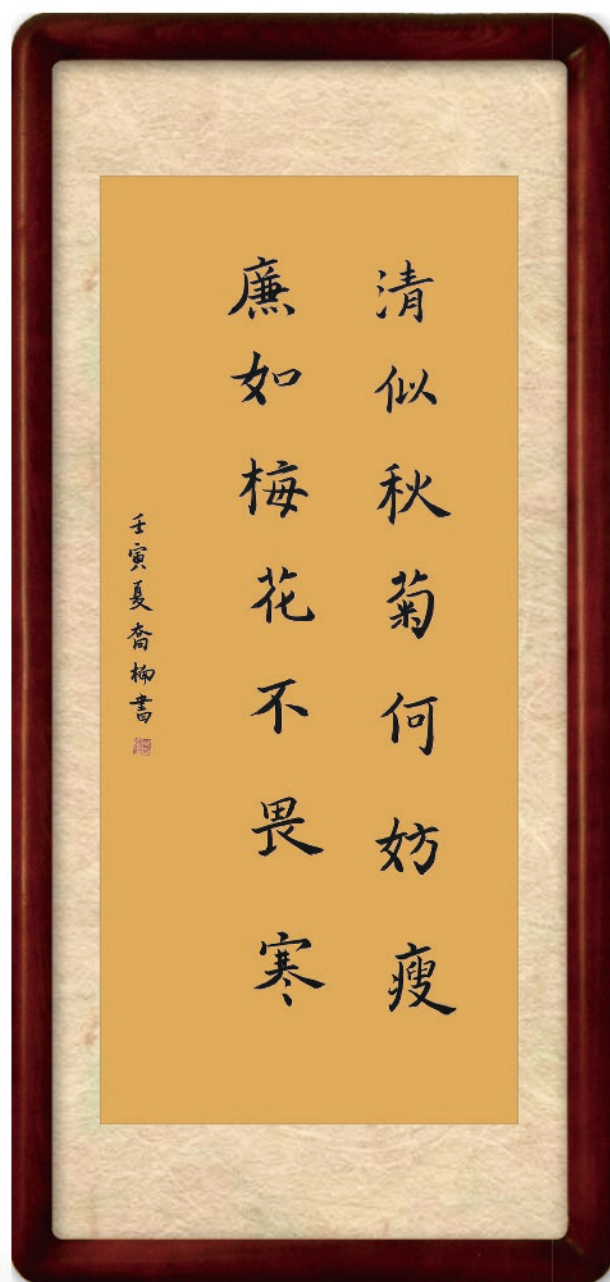 清似秋菊何妨瘦
廉如梅花不畏寒
壬寅夏喬楠書